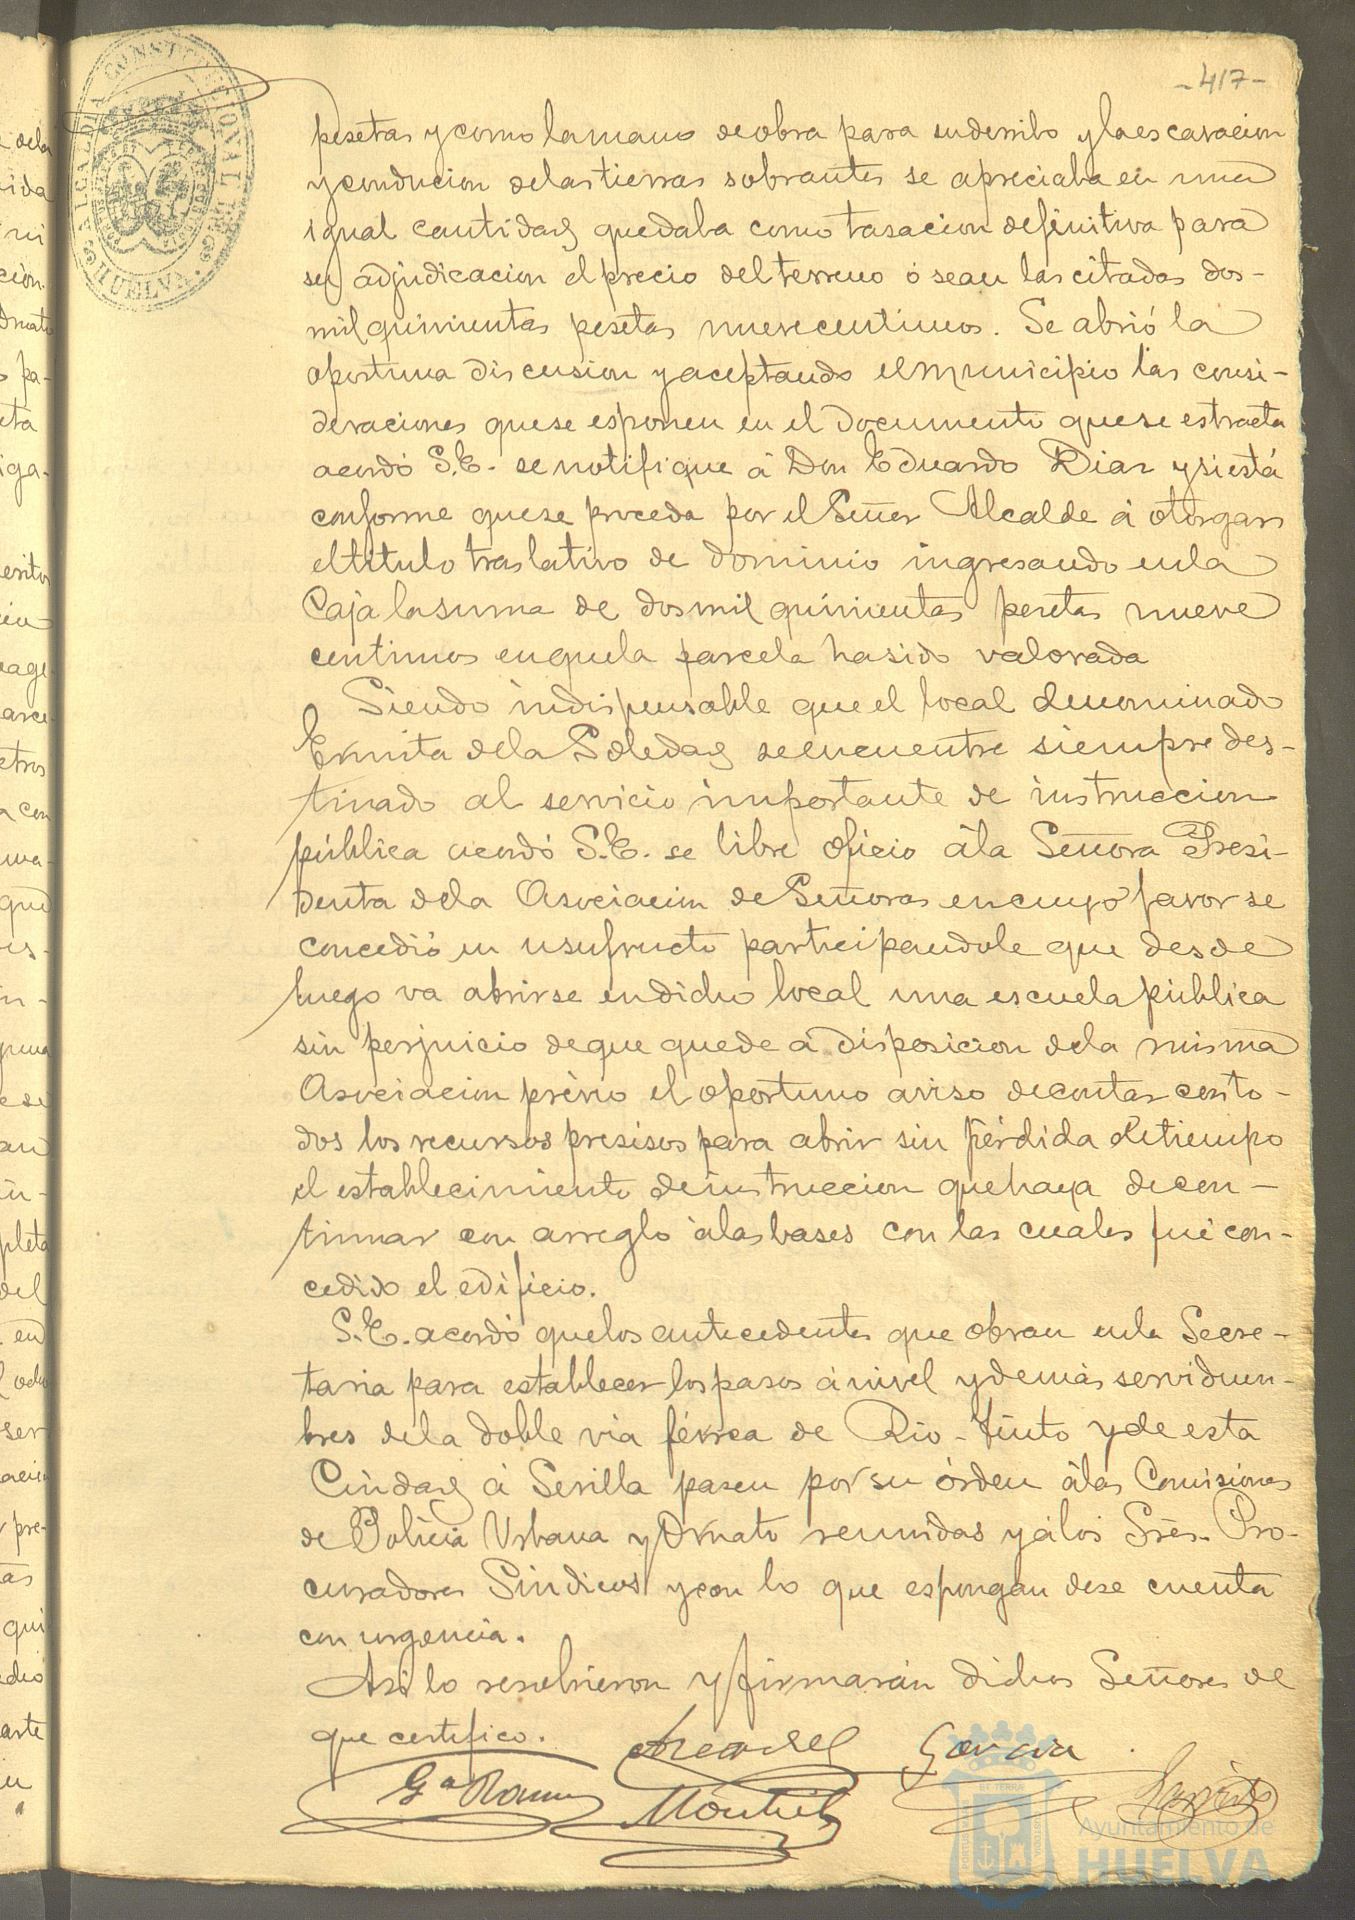 -417-
ALCALDIA CONSTITUCIONAL DE HUELVA.
pesetas y como la mano de obra para su derribo y la escavacion
y conducion de las tierras sobrantes se apreciaba en una
igual cantidad quedaba como tasacion definitiva para
su adjudicacion el precio del terreno ó sean las citadas dos-
mil quinientas pesetas nueve centimos. Se abrió la
oportuna discusion y aceptando el municipio las consi-
deraciones que se esponen en el documento que se estracta
acordó S.E. se notifique á Don Eduardo Diaz y si está
conforme que se proceda por el Señor Alcalde á otorgar
el titulo traslativo de dominio ingresando en la
Caja la suma de dos mil quinientas pesetas nueve
centimos en que la parcela ha sido valorada
Siendo indispensable que el local denominado
Ermita de la Soledad se encuentre siempre des-
tinado al servicio importante de instruccion
pública acordó S.E. se libre oficio á la Señora Presi-
denta de la Asociacion de Señoras en cuyo favor se
concedió en usufructo participandole que desde
luego va abrirse en dicho local una escuela pública
sin perjuicio de que quede a disposicion de la misma
Asociacion prévio el oportuno aviso de contar con to-
dos los recursos presisos para abrir sin pérdida de tiempo
el establecimiento de instruccion que haya de con-
tinuar con arreglo á las bases con las cuales fué con-
cedido el edificio.
S.E. acordó que los antecedentes que obran en la Secre-
taria para establecer los pasos á nivel y demás servidum-
bres de la doble via férrea de Rio-Tinto y de esta
Ciudad á Sevilla pasen por su órden á las Comisiones
de Policia Urbana y Ornato reunidas y á los Sres. Pro-
curadores Sindicos y con lo que espongan dese cuenta
con urgencia.
Asi lo resolvieron y firmarán dichos Señores de
que certifico.
Garcia
Gª Ramos
Montiel
Ayuntamiento de
HUELVA